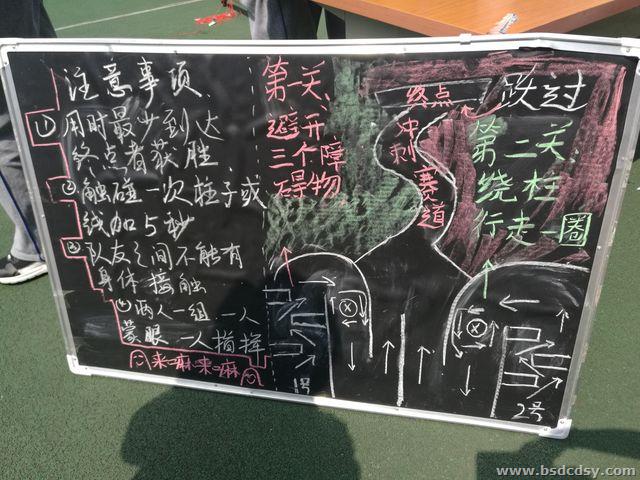 注意事项
① 用时最少到达
终点者获胜
② 触碰一次柱子或
线加5秒
③ 队友之间不能有
身体接触
④ 两人一组 一人
蒙眼 一人指挥
来一麻来一麻
第一关、
避开
三个障
碍物
终点
冲刺
赛道
跃过
第二关、
绕柱
行走一圈
1号
2号
www.bsdcdsy.com